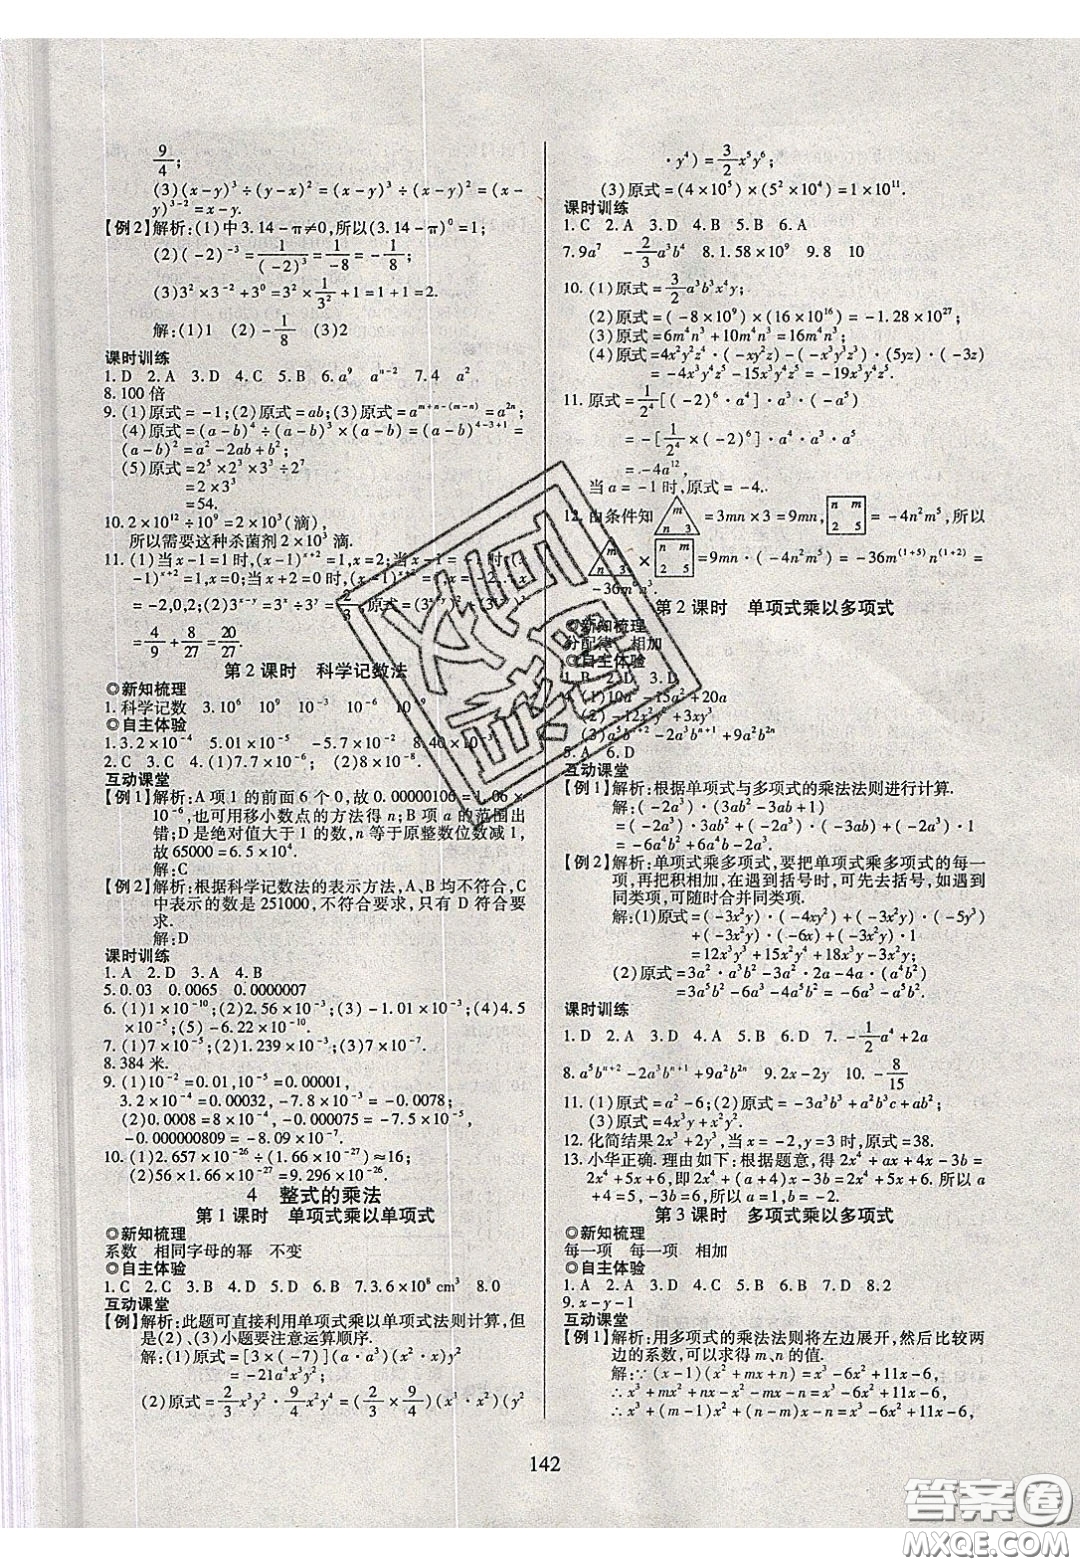 9/4;
(3)(x-y)³÷(y-x)²=(x-y)³÷(x-y)²=(x-
y)³⁻²=x-y.
【例2】解析:(1)中3.14-π≠0,所以(3.14-π)⁰=1;
(2)(-2)⁻³=1/(-2)³=1/-8=-1/8;
(3)3²×3⁻²+3⁰=3²×1/3²+1=1+1=2.
解:(1)1 (2)-1/8 (3)2
课时训练
1.D 2.A 3.D 4.C 5.B 6.a⁹ aⁿ⁻² 7.4 a²
8.100倍
9.(1)原式=-1;(2)原式=ab;(3)原式=a^(m+n-(m-n))=a²ⁿ;
(4)原式=(a-b)⁴÷(a-b)³×(a-b)=(a-b)⁴⁻³⁺¹=
(a-b)²=a²-2ab+b²;
(5)原式=2⁵×2³×3³÷2⁷
=2×3³
=54.
10.2×10¹²÷10⁹=2×10³(滴),
所以需要这种杀菌剂2×10³滴.
11.(1)当x-1=1时,(x-1)^(x+2)=1,x=2;当x-1=
-1)^(x+2)=1,x=0;当x+2=0时,(x-1)^(x+2)=1,x=-2.
=-2,0,2;(2)3^(x-y)=3^x÷3^y=2/3 原式=
=4/9+8/27=20/27.
第2课时 科学记数法
◎新知梳理
1.科学记数 3.10⁶ 10⁹ 10⁻³ 10⁻⁶ 10⁻⁹
◎自主体验
1.3.2×10⁻⁴ 5.01×10⁻⁵ -5.7×10⁻² 8.40×10⁻³
2.C 3.C 4.(1)7.7×10⁻⁶;(2)8×10⁻⁵
互动课堂
【例1】解析:A项1的前面6个0,故0.00000106=1.06×
10⁻⁶,也可用移小数点的方法得n;B项a的范围出
错;D是绝对值大于1的数,n等于原整数位数减1,
故65000=6.5×10⁴.
解:C
【例2】解析:根据科学记数法的表示方法,A、B均不符合,C
中表示的数是251000,不符合要求,只有D符合要
求.
解:D
课时训练
1.A 2.D 3.A 4.B
5.0.03 0.0065 0.0000007
6.(1)1×10⁻¹⁰;(2)2.56×10⁻³;(3)-1.01×10⁻³;(4)4.5
×10⁻⁵;(5)-6.22×10⁻¹⁰.
7.(1)7×10⁻⁵;(2)1.239×10⁻³;(3)-1×10⁻⁶.
8.384米.
9.(1)10⁻²=0.01,10⁻⁵=0.00001,
3.2×10⁻⁴=0.00032,-7.8×10⁻³=-0.0078;
(2)0.0008=8×10⁻⁴,-0.000075=-7.5×10⁻⁵,
-0.000000809=-8.09×10⁻⁷.
10.(1)2.657×10⁻²⁶÷(1.66×10⁻²⁷)≈16;
(2)56×1.66×10⁻²⁷=9.296×10⁻²⁶.
4 整式的乘法
第1课时 单项式乘以单项式
◎新知梳理
系数 相同字母的幂 不变
◎自主体验
1.C 2.C 3.B 4.D 5.D 6.B 7.3.6×10⁸ cm³ 8.0
互动课堂
【例】解析:此题可直接利用单项式乘以单项式法则计算,但
是(2)、(3)小题要注意运算顺序.
解:(1)原式=[3×(-7)](a·a³)(x²·x)y²
=-21a⁴x³y²;
(2)原式=2/3x³y²·9/4x²y⁴=(2/3×9/4)(x³·x²)(y²
·y⁴)=3/2x⁵y⁶;
(3)原式=(4×10⁵)×(5²×10⁴)=1×10¹¹.
课时训练
1.C 2.A 3.D 4.D 5.B 6.A
7.9a⁷ -2/3a³b⁴ 8.1.58×10⁹ 9.8 10
10.(1)原式=3/2a³b³x⁴y;
(2)原式=(-8×10⁹)×(16×10¹⁶)=-1.28×10²⁷;
(3)原式=6m⁴n³+10m⁴n³=16m⁴n³;
(4)原式=4x²y²z²·(-xy²z)-(-x³y³z³)·(5yz)·(-3z)
=-4x³y⁴z⁵-15x³y⁴z⁵=-19x³y⁴z⁵.
11.原式=1/2⁴[(-2)⁶·a⁴]·a³·(-a⁵)
=-[1/2⁴×(-2)⁶]·a⁴·a³·a⁵
=-4a¹²,
当a=-1时,原式=-4.
12.由条件知 m n 3 =3mn×3=9mn, n m 2 5 =-4n²m⁵,所以
m n 3 × n m 2 5 =9mn·(-4n²m⁵)=-36m⁽¹⁺⁵⁾n⁽¹⁺²⁾=
-36m⁶n³.
第2课时 单项式乘以多项式
◎新知梳理
分配律 相加
◎自主体验
1.B 2.D 3.D
4.(1)10a³-15a²+20a
5.A 6.D
互动课堂
【例1】解析:根据单项式与多项式的乘法法则进行计算.
解:(-2a³)·(3ab²-3ab+1)
=(-2a³)·3ab²+(-2a³)·(-3ab)+(-2a³)·1
=-6a⁴b²+6a⁴b-2a³.
【例2】解析:单项式乘多项式,要把单项式乘多项式的每一
项,再把积相加,在遇到括号时,可先去括号,如遇到
同类项,可随时合并同类项.
解:(1)原式=(-3x²y)·(-4x²)+(-3x²y)·(-5y³)
+(-3x²y)·(-6x)+(-3x²y)·1
=12x⁴y+15x²y⁴+18x³y-3x²y;
(2)原式=3a²·a³b²-3a²·2a-4a·(-a²b)²
=3a⁵b²-6a³-4a⁵b²=-a⁵b²-6a³.
课时训练
1.D 2.A 3.D 4.D 5.B 6.A 7.-1/2a⁴+2a
8.a⁵bⁿ⁺²-2a³bⁿ⁺¹+9a²b²ⁿ 9.2x-2y 10.-8/15
11.(1)原式=a²-6;(2)原式=-3a³b³+a²b³c+a²b²;
(3)原式=x⁴y+x²y².
12.化简结果2x³+2y³,当x=-2,y=3时,原式=38.
13.小华正确.理由如下:根据题意,得2x⁴+4x-3b=
2x⁴+5x+6,所以4x+a-3b=5x+6,所以x=a
-3b-6.
第3课时 多项式乘以多项式
◎新知梳理
每一项 每一项 相加
◎自主体验
1.A 2.A 3.D 4.C 5.B 6.D 7.D 8.2
9.x-y-1
互动课堂
【例1】解析:用多项式的乘法法则将左边展开,然后比较两
边的系数,可以求得m、n的值.
解:∵(x-1)(x²+mx+n)=x³-6x²+11x-6,
∴x³+mx²+nx-x²-mx-n=x³-6x²+11x-6,
∴x³+(m-1)x²+(n-m)x-n=x³-6x²+11x-6,
142
答案圈
MXQE.COM